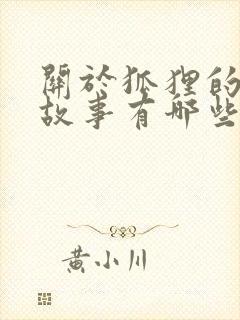 關於狐狸的
故事有哪些
黃小川